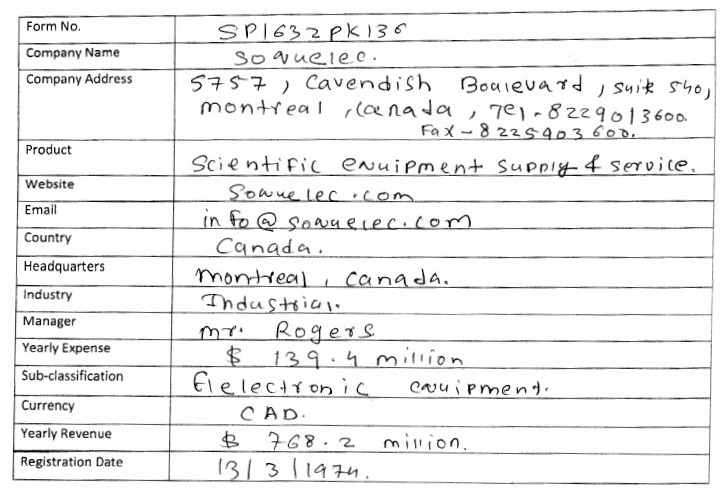 Form No. SP1632PK136
Company Name Soquelec.
Company Address 5757, Cavendish Boulevard, suite 540,
montreal, Canada, Tel-82290 13600.
Fax-8225903600.
Product Scientific equipment supply & service.
Website Soquelec.com
Email info@soquelec.com
Country Canada.
Headquarters montreal, Canada.
Industry Industrial.
Manager mr. Rogers
Yearly Expense $ 139.4 million
Sub-classification Elelectronic equipment.
Currency CAD.
Yearly Revenue $ 768.2 million.
Registration Date 13/3/1974.